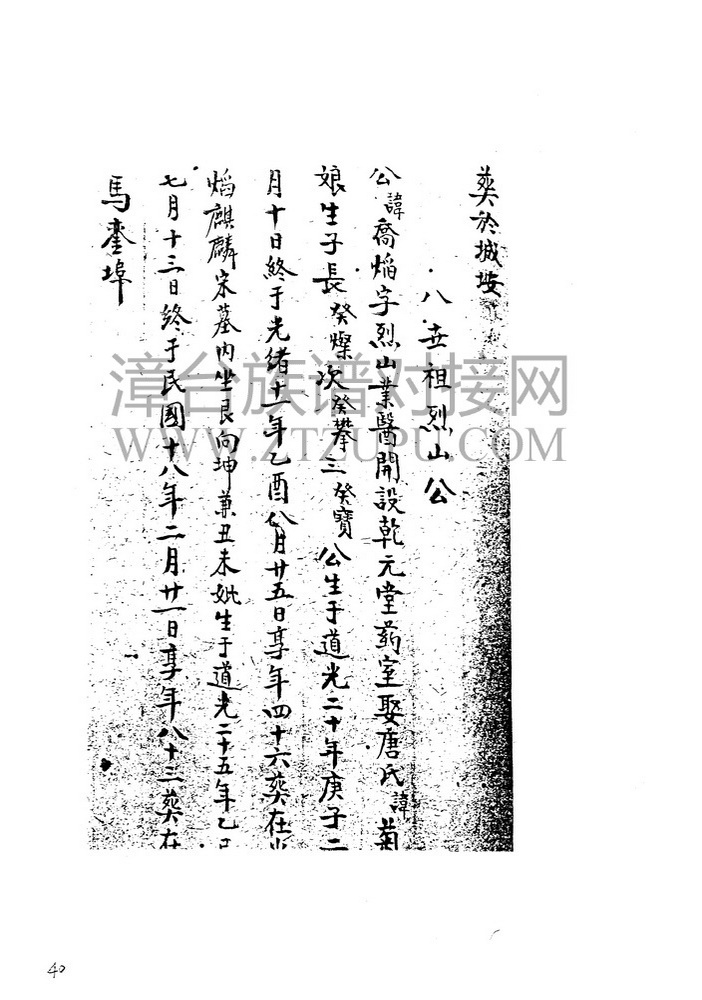 葬於城垵
八世祖烈山公
公諱喬焰字烈山業醫開設乾元堂药室娶唐氏諱菊
娘生子長癸燦次癸攀三癸寶公生于道光二十年庚子二
月十日終于光緒十一年乙酉八月廿五日享年四十六葬在
焰麒麟宋墓内坐艮向坤兼丑未妣生于道光二十五年乙巳
七月十三日終于民國十八年二月廿一日享年八十三葬在
馬埠
漳台族谱对接网
WWW.ZTZUPU.COM
40